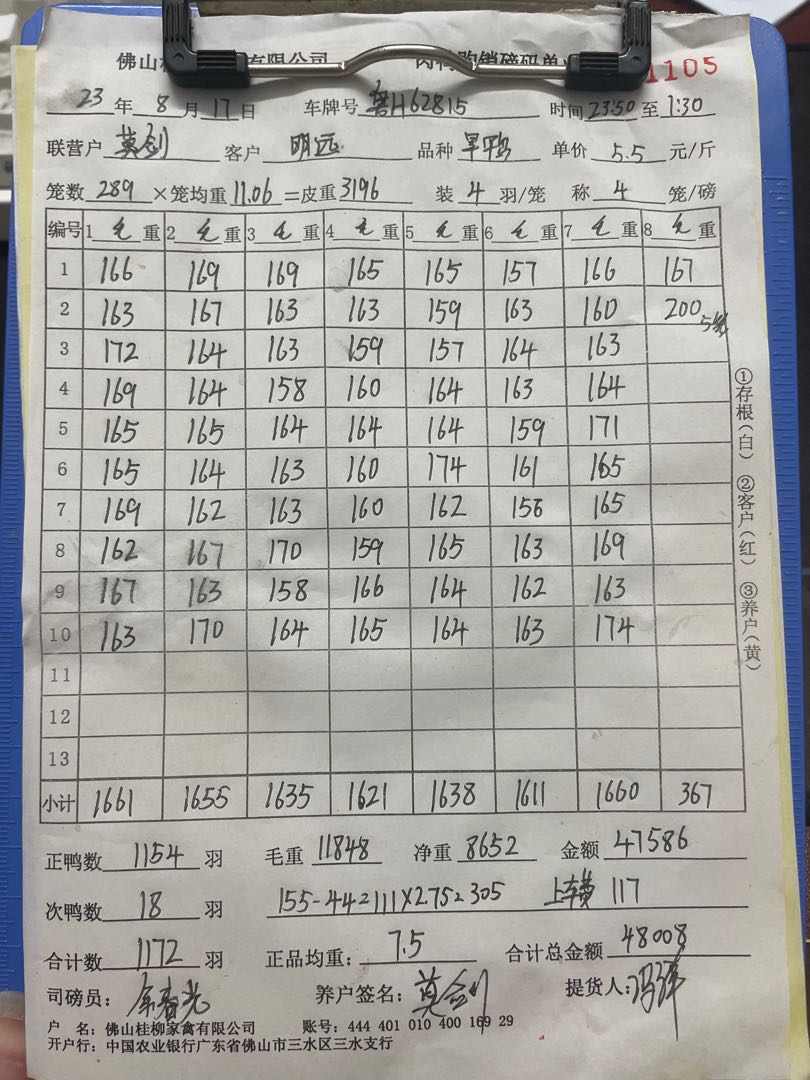 佛山桂 有限公司 购销磅码单 1105
23年8月17日 车牌号 鲁H62815 时间23:50至1:30
联营户 莫剑 客户 明远 品种 旱鸭 单价 5.5 元/斤
笼数 289 ×笼均重 11.06 =皮重 3196 装 4 羽/笼 称 4 笼/磅
编号 1 毛 重 2 毛 重 3 毛 重 4 毛 重 5 毛 重 6 毛 重 7 毛 重 8 毛 重
1 166 169 169 165 165 157 166 167
2 163 167 163 163 159 163 160 200 5笼
3 172 164 163 159 157 164 163
4 169 164 158 160 164 163 164
5 165 165 164 164 164 159 171
6 165 164 163 160 174 161 165
7 169 162 163 160 162 156 165
8 162 167 170 159 165 163 169
9 167 163 158 166 164 162 163
10 163 170 164 165 164 163 174
11
12
13
小计 1661 1655 1635 1621 1638 1611 1660 367
正鸭数 1154 羽 毛重 11848 净重 8652 金额 47586
次鸭数 18 羽 155-44=111×2.75=305 上车费 117
合计数 1172 羽 正品均重: 7.5 合计总金额 48008
司磅员: 养户签名: 莫剑 提货人:
户 名: 佛山桂柳家禽有限公司 账号: 444 401 010 400 169 29
开户行: 中国农业银行广东省佛山市三水区三水支行
①存根(白) ②客户(红) ③养户(黄)